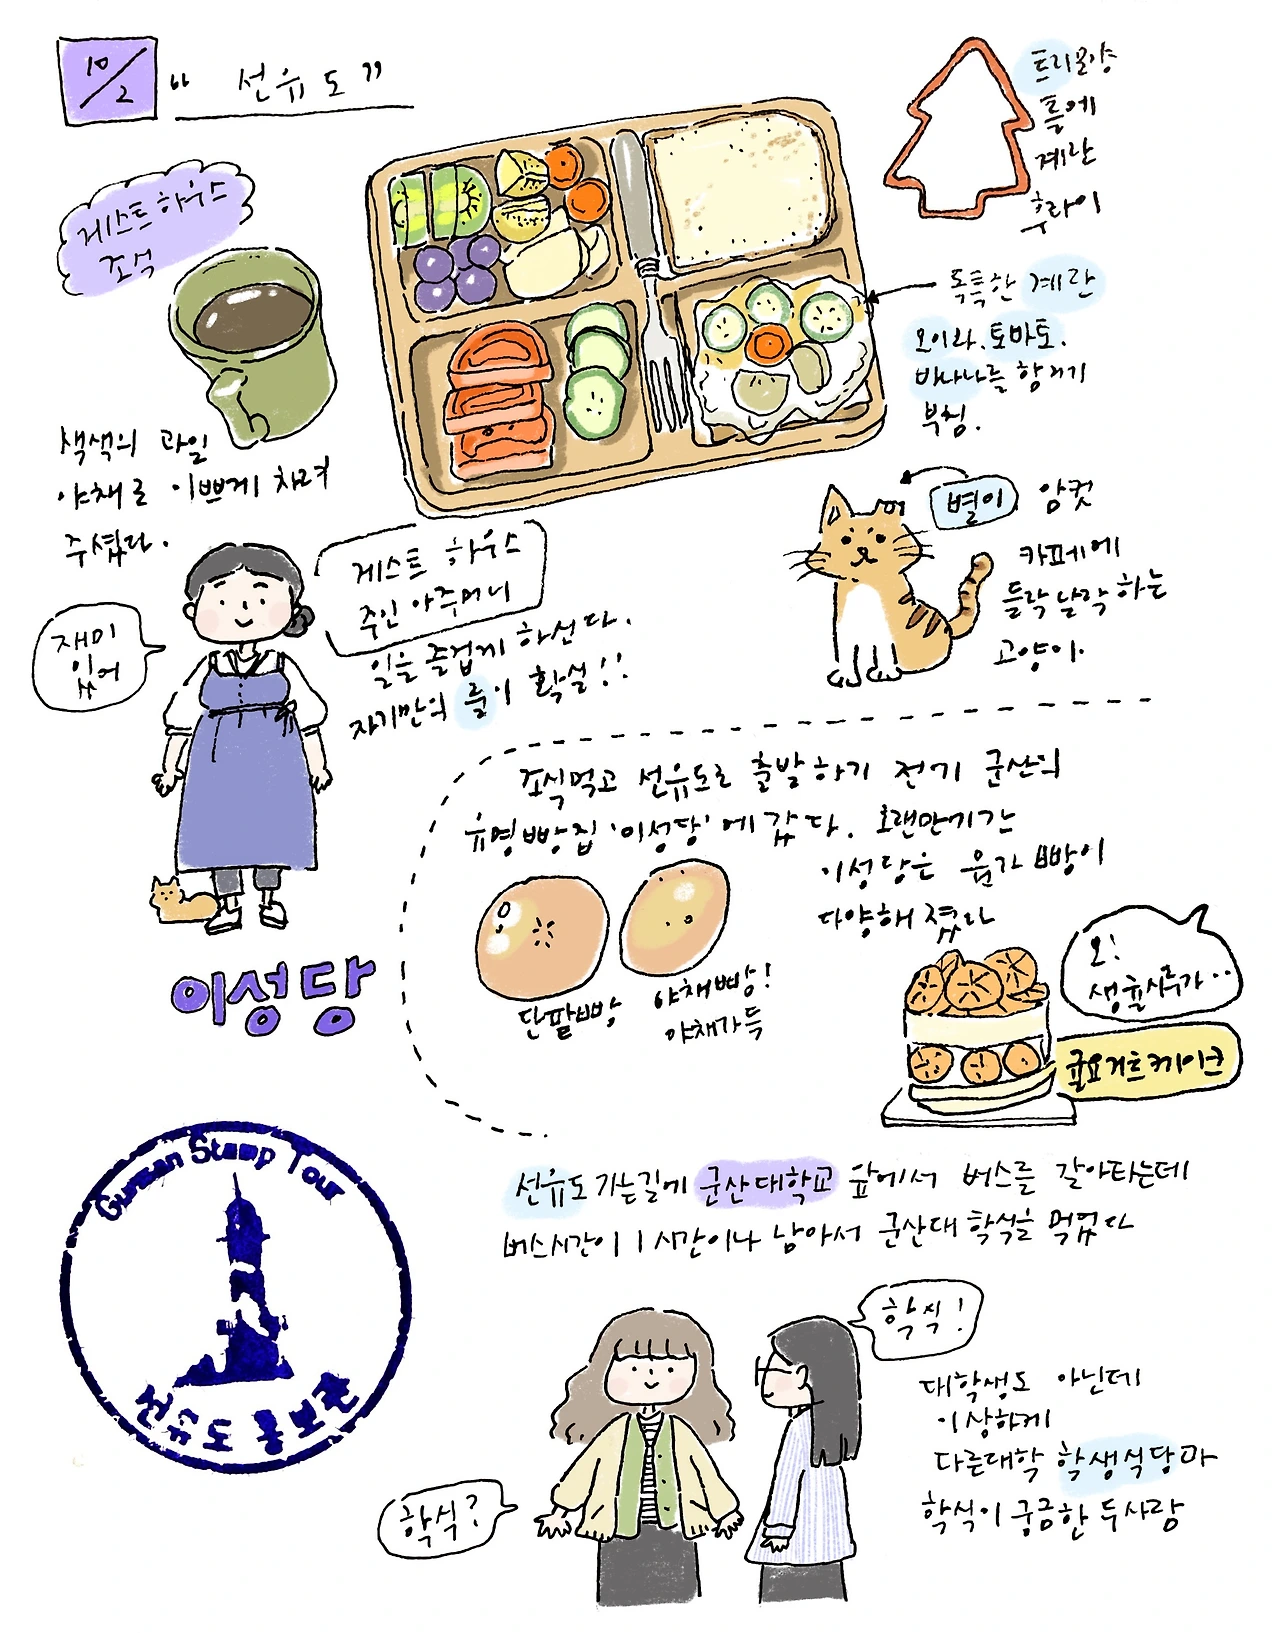 10/2
" 선유도"
게스트하우스
조식
색색의 과일
야채로 이쁘게 차려
주셨다.
트리모양
틀에
계란
후라이
독특한 계란
오이랑.토마토.
바나나를
부침.
별이 암컷
카페에
들락날락하는
고양이.
재미
있어
게스트 하우스
주인아주머니
일을 즐겁게 하신다.
자기만의 룰이 확실!!
조식먹고 선유도로 출발하기 전기 군산의
유명빵집 '이성당'에갔다. 오랜만에간
이성당은 뭔가 빵이
다양해 졌다
단팥빵
야채빵!
야채가득
오!
생귤시루가..
귤요거트케이크
이성당
Gunsan Stamp Tour
선유도 홍보관
선유도 가는길에 군산대학교 앞에서 버스를 갈아타는데
버스시간이 1시간이나 남아서 군산대 학식을 먹었다
학식!
학식?
대학생도 아닌데
이상하게
다른대학 학생식당과
학식이 궁금한 두사람